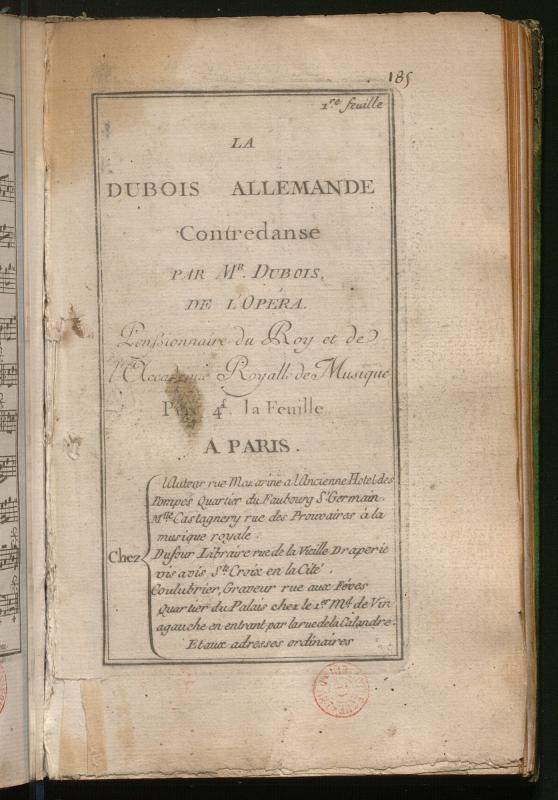 185
1re feuille
LA
DUBOIS ALLEMANDE
Contredanse
PAR MR. DUBOIS,
DE L'OPÉRA.
Pensionnaire du Roy et de
l'Accademie Royalle de Musique
Prix 4f. la Feuille
A PARIS.
Chez
l'Auteur rue Mazarine a l'Ancienne Hotel des
Pompes Quartier du Faubourg St Germain.
Mlle Castagnery rue des Prouvaires à la
musique royale.
Dufour Libraire rue de la Vieille Draperie
vis avis Ste Croix en la Cité.
Coulubrier, Graveur rue aux Féves
Quartier du Palais chez le 1er Md. de Vin
agauche en entrant par la rue de la Calandre.
Et aux adresses ordinaires